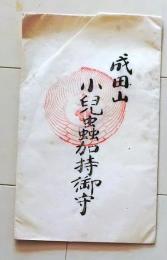 成田山
小兒虫蟲加持御守